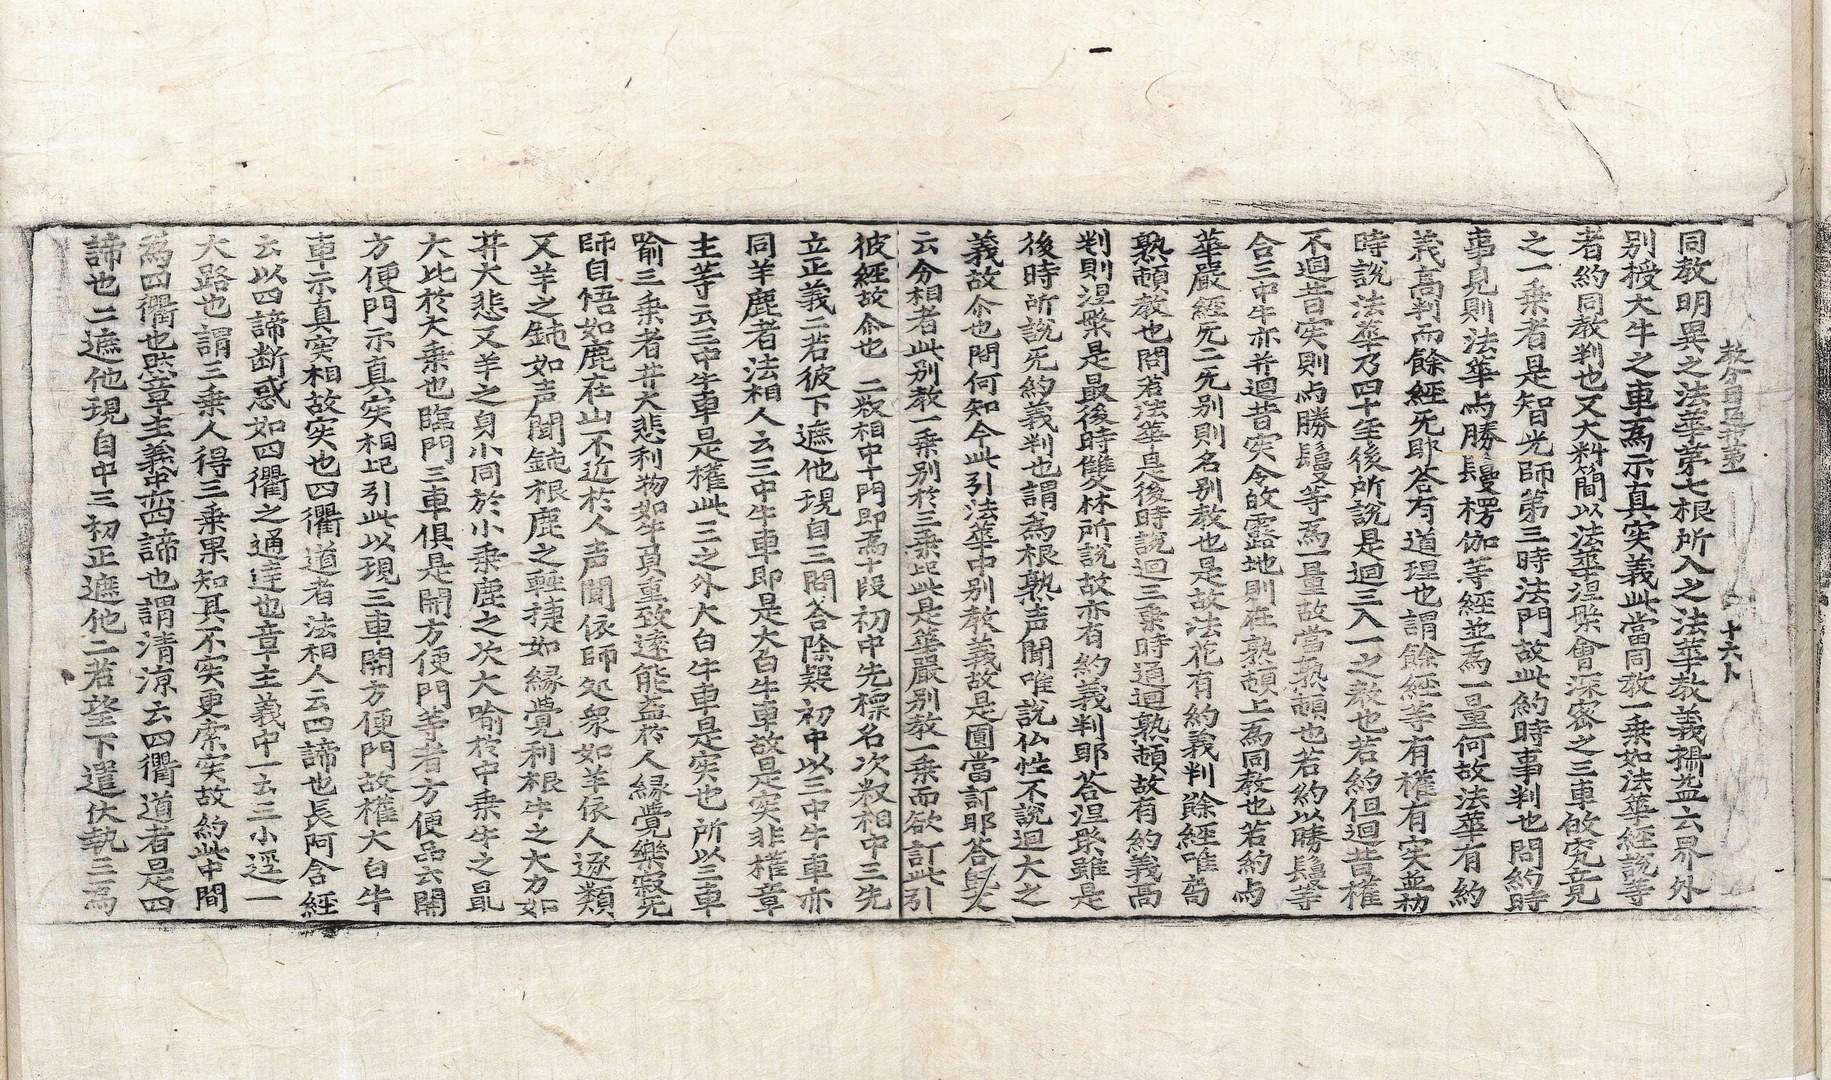 教分圓通抄第一
十六卜
同教明異之法華第七根所入之法華教義攝益六界外
別授大牛之車爲示真実義此當同教一乗如法華經說等
者約同教判也又大料簡以法華涅槃會深密之三車故究竟
之一乗者是智光師第三時法門故此約時事判也問約時
事見則法華与勝鬘楞伽等經並爲一量何故法華有約
義高判而餘經无耶答有道理也謂餘經等有權有实並初
時說法華乃四十年後所說是迴三入一之教也若約但迴昔權
不迴昔实則与勝鬘等爲一量故當熟頓也若約以勝鬘等
合三中牛亦并迴昔实令故露地則在熟頓上爲同教也若約与
華嚴經无二无別則名別教也是故法花有約義判餘經唯當
熟頓教也問若法華是後時說迴三乗時通迴熟頓故有約義高
判則涅槃是最後時雙林所說故亦有約義判耶答涅槃雖是
後時所說无約義判也謂爲根熟声聞唯說仏性不說迴大之
義故尒也問何知今此引法華中別教義故是圓當訂耶答
云分相者此別教一乗別於三乗記此是華嚴別教一乗而欲訂此引
彼經故尒也 二叙相中十門即爲十段初中先標名次叙相中三先
立正義二若彼下遮他現自三問答除疑初中以三中牛車亦
同羊鹿者法相人云三中牛車即是大白牛車故是实非權章
主等云三中牛車是權此三之外大白牛車是实也所以三車
喻三乗者并大悲利物如牛負重致遠能益於人縁覺樂寂无
師自悟如鹿在山不近於人声聞依師処衆如羊依人逐類
又羊之鈍如声聞鈍根鹿之輕捷如縁覺利根牛之大力如
并大悲又羊之身小同於小乗鹿之次大喻於中乗牛之最
大比於大乗也臨門三車俱是開方便門等者方便品云開
方便門示真实相記引此以現三車開方便門故權大白牛
車示真实相故实也四衢道者法相人云四諦也長阿含經
云以四諦断惑如四衢之通達也章主義中一云三小逕一
大路也謂三乗人得三乗果知其不实更索实故約此中間
爲四衢也然章主義中亦四諦也謂清涼云四衢道者是四
諦也二遮他現自中三初正遮他二若望下遣伏執三爲